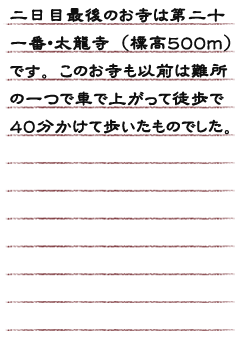 二日目最後のお寺は第二十
一番・太龍寺（標高500ｍ）
です。このお寺も以前は難所
の一つで車で上がって徒歩で
40分かけて歩いたものでした。